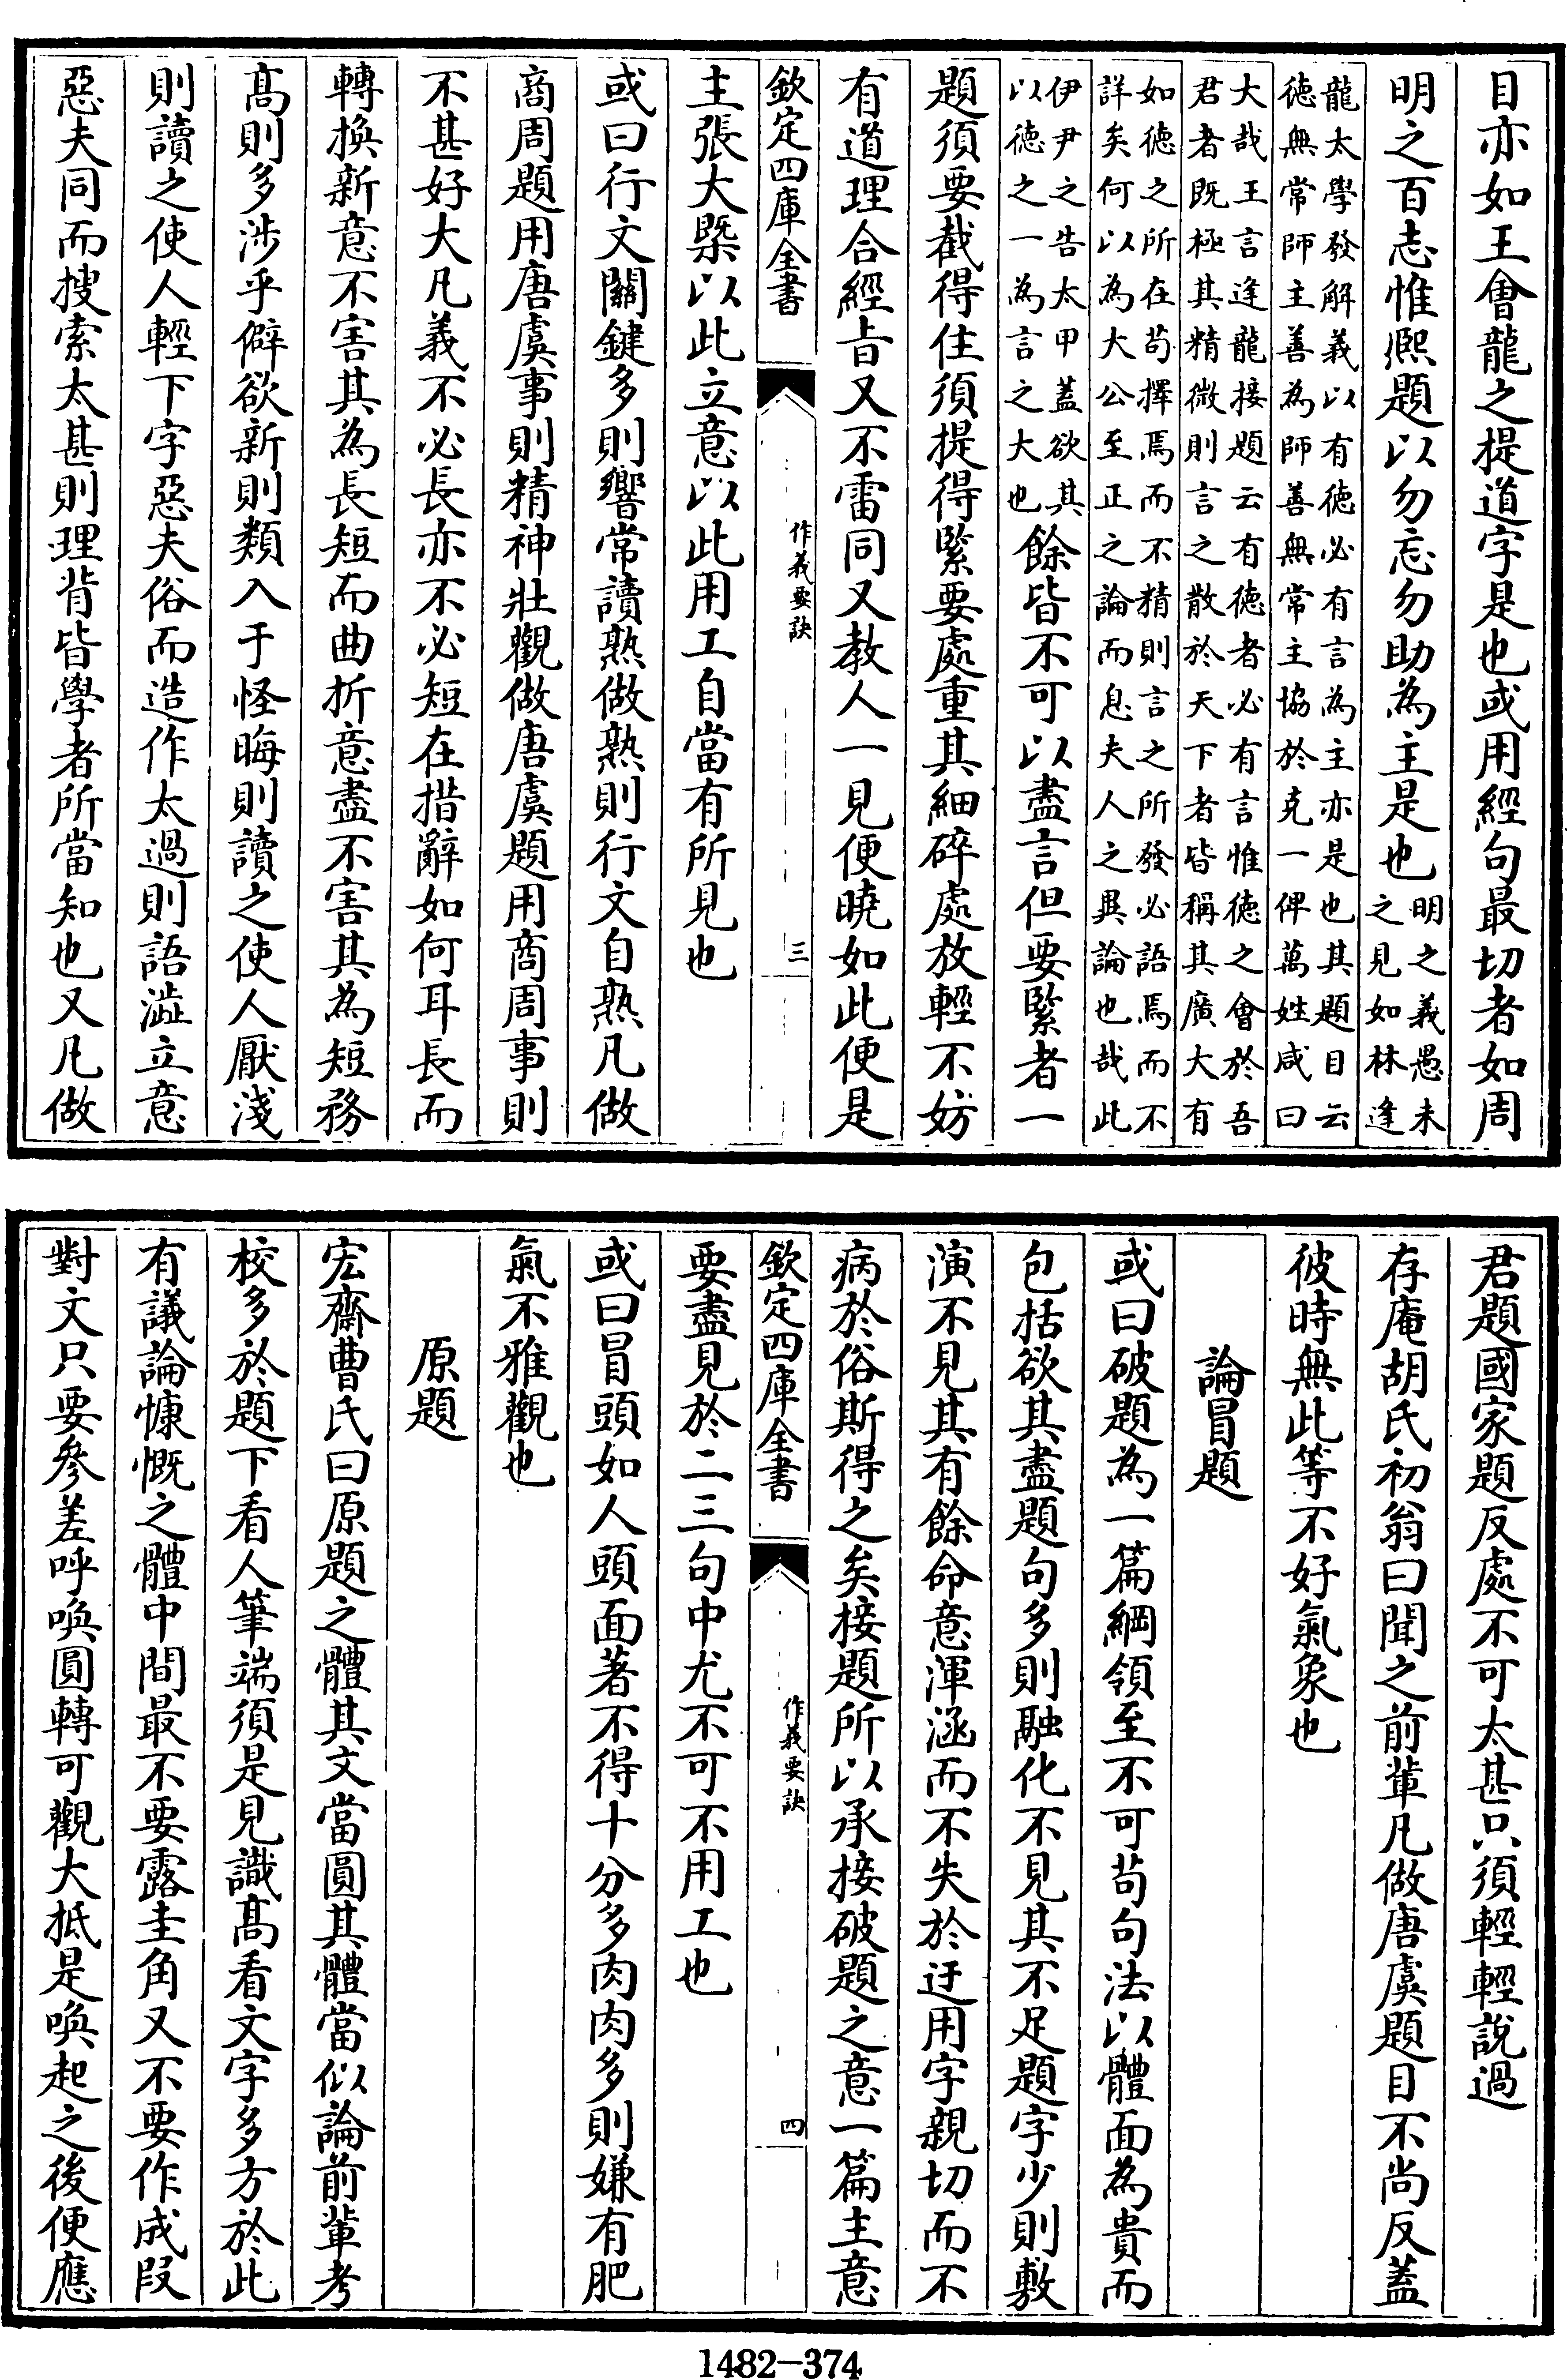 目亦如王會龍之提道字是也或用經句最切者如周
明之百志惟熙題以勿忘勿助為主是也明之義愚未
之見如林逢
龍太學發解義以有徳必有言為主亦是也其題目云
徳無常師主善為師善無常主協於克一俾萬姓咸曰
大哉王言逢龍接題云有徳者必有言惟徳之會於吾
君者既極其精微則言之散於天下者皆稱其廣大有
如徳之所在苟擇焉而不精則言之所發必語焉而不
詳矣何以為大公至正之論而息夫人之異論也哉此
伊尹之告太甲蓋欲其
以徳之一為言之大也餘皆不可以盡言但要緊者一
題須要截得住須提得緊要處重其細碎處放輕不妨
有道理合經㫖又不雷同又教人一見便曉如此便是
欽定四庫全書
作義要訣
三
主張大槩以此立意以此用工自當有所見也
或曰行文關鍵多則響常讀熟做熟則行文自熟凡做
商周題用唐虞事則精神壯觀做唐虞題用商周事則
不甚好大凡義不必長亦不必短在措辭如何耳長而
轉換新意不害其為長短而曲折意盡不害其為短務
髙則多涉乎僻欲新則類入于怪晦則讀之使人厭淺
則讀之使人輕下字惡夫俗而造作太過則語澁立意
惡夫同而搜索太甚則理背皆學者所當知也又凡做
君題國家題反處不可太甚只須輕輕說過
存庵胡氏初翁曰聞之前輩凡做唐虞題目不尚反蓋
彼時無此等不好氣象也
論冒題
或曰破題為一篇綱領至不可苟句法以體面為貴而
包括欲其盡題句多則融化不見其不足題字少則敷
演不見其有餘命意渾涵而不失於迂用字親切而不
病於俗斯得之矣接題所以承接破題之意一篇主意
欽定四庫全書
作義要訣
四
要盡見於二三句中尤不可不用工也
或曰冒頭如人頭面著不得十分多肉肉多則嫌有肥
氣不雅觀也
原題
宏齋曹氏曰原題之體其文當圓其體當似論前輩考
校多於題下看人筆端須是見識髙看文字多方於此
有議論慷慨之體中間最不要露圭角又不要作成段
對文只要參差呼喚圓轉可觀大抵是喚起之後便應
1482-374